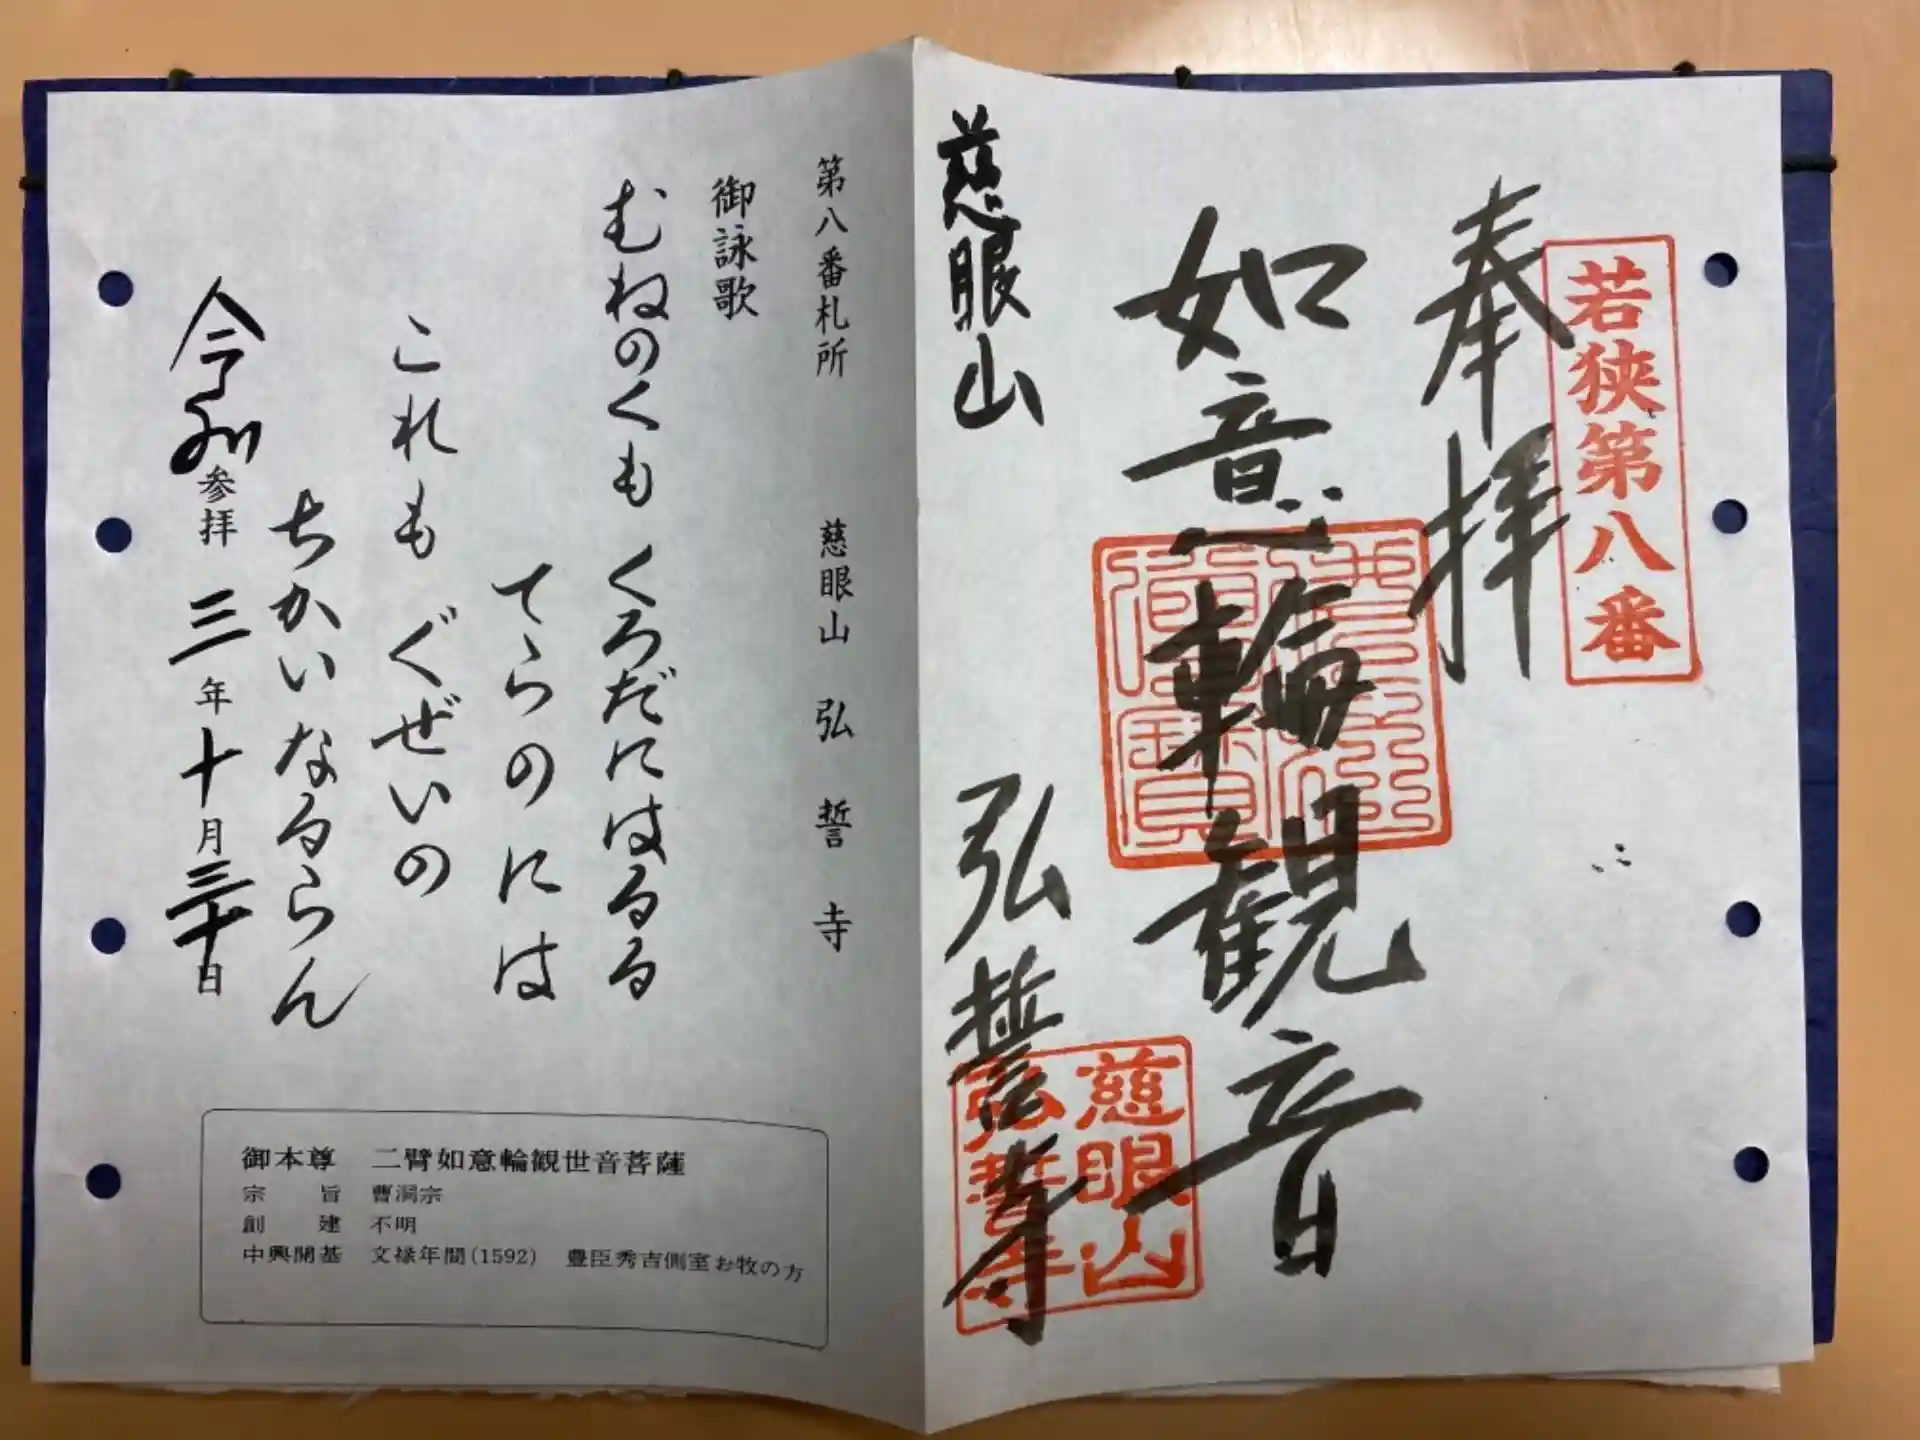 若狭第八番
奉拝
如意輪観音
慈眼山 弘誓寺
慈眼山
弘誓寺
第八番札所 慈眼山 弘誓寺
御詠歌
むねのくも くろだにはるる
てらのには
これも ぐぜいの
ちかいなるらん
令和参拝 三年十月三十日
御本尊 二臂如意輪観世音菩薩
宗旨 曹洞宗
創建 不明
中興開基 文禄年間(1592) 豊臣秀吉側室お牧の方